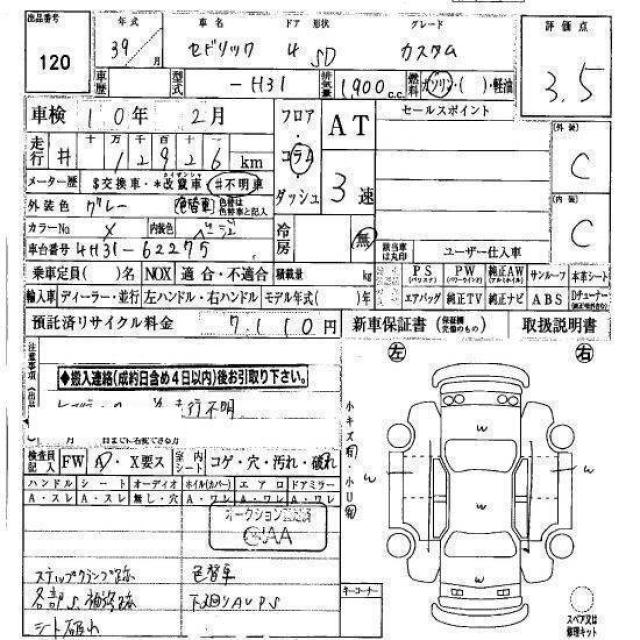 出品番号 年式 車名 ドア 形状 グレード 評価点
120 39 月 セドリック 4 SD カスタム 3.5
車歴 型式 -H31 排気量 1,900 c.c. 燃料 ガソリン・( )・軽油
車検 10年 2月 フロア AT セールスポイント (外装)
走行 # 十 万 千 百 十 一 コラム C
1 2 9 2 6 km
メーター歴 $交換車・*改竄車・#不明車 ダッシュ 3速 (内装)
外装色 グレー 色替車 色替は色替車と記入 C
カラーNo 内装色 冷房 無 該当車は丸印 ユーザー仕入車
車台番号 4H31-62275
乗車定員( )名 NOX 適合・不適合 積載量 kg PS PW 純正AW サンルーフ 本革シート
輸入車 ディーラー・並行 左ハンドル・右ハンドル モデル年式( )年 エアバッグ 純正TV 純正ナビ ABS Dチューナー
預託済リサイクル料金 7,110円 新車保証書 (保証欄完備のもの) 取扱説明書
注意事項 左 右
◆搬入連絡(成約日含め4日以内)後お引取り下さい。
不明
月 日までに名変できる方
小キズ有・小U有
検査員記入 FW A・X要ス 室内シート コゲ・穴・汚れ・破れ
ハンドル シート オーディオ ホイル(カバー) エアロ ドアミラー
A・スレ A・スレ 無し・穴 A・ワレ A・ワレ A・ワレ
オークション
JAA
ステップクランプ跡 色替車
各部S、補修跡 下廻りAUPS
シート破れ キーコーナー
w
w w w
w
スペア又は
修理キット